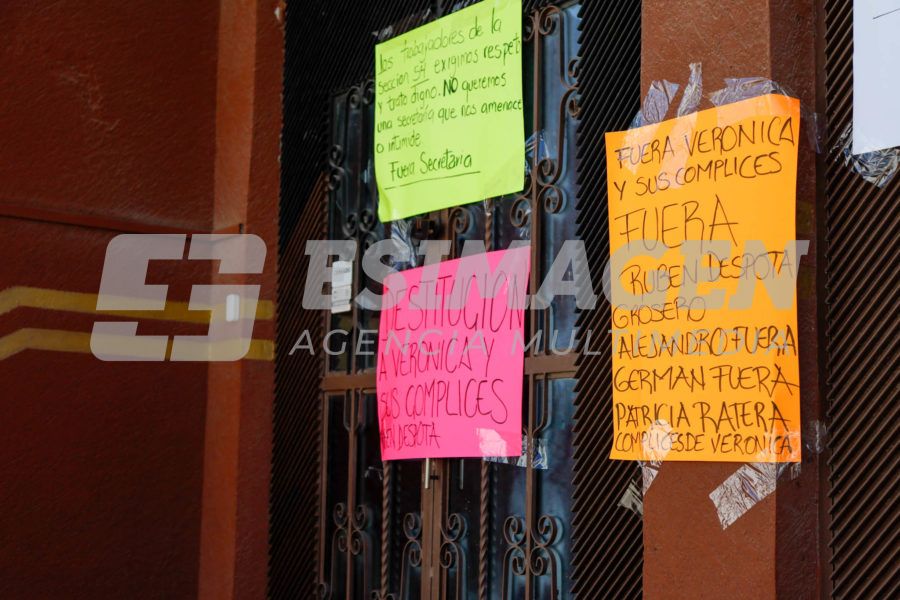 Los trabajadores de la
sección 54 exigimos respeto
y trato digno. NO queremos
una secretaria que nos amenace
o intimide
Fuera Secretaria
DESTITUCION
A VERONICA Y
SUS COMPLICES
DESPOTA
FUERA VERONICA
Y SUS COMPLICES
FUERA
RUBEN DESPOTA
GROSERO
ALEJANDRO FUERA
GERMAN FUERA
PATRICIA RATERA
COMPLICES DE VERONICA
ESIMAGEN
AGENCIA MULTIMEDIA